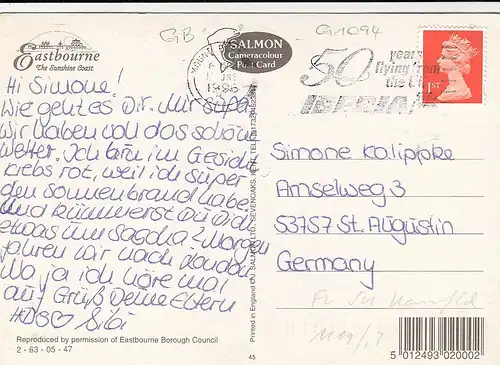 GB
G1094
Eastbourne
The Sunshine Coast
SALMON
Cameracolour
Post Card
50 years
flying from
the
IBERIA
1ST
Hi Simone!
Wie geht es Dir. Mir super
wir haben voll das schöne
Wetter. Ich bin im Gesicht
krebs rot, weil ich super
den Sonnenbrand habe
und kümmerst Du Dich
etwas um Sascha? Morgen
fahren wir nach London
Na ja ich höre mal
auf Grüß Deine Eltern
HDS♡ Bibi
Simone Kalippke
Amselweg 3
53757 St. Augustin
Germany
Printed in England © J. SALMON LTD., SEVENOAKS, KENT. TEL:
Reproduced by permission of Eastbourne Borough Council
2 - 63 - 05 - 47
45
5 012493 020002